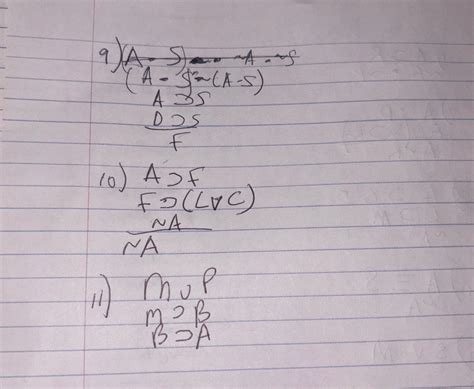 9) (A - S) - - ~A - ~S
(A - S) ~ (A - S)
A ⊃ S
D ⊃ S
F
10) A ⊃ F
F ⊃ (L ∨ C)
~A
~A
11) M ∪ P
M ⊃ B
B ⊃ A